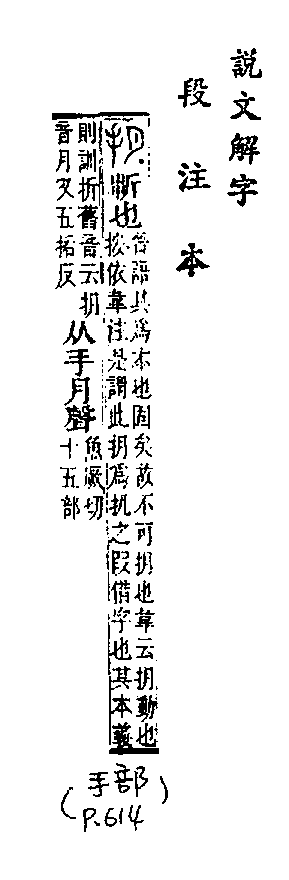 說文解字
段注本
抈折也
晉語其爲本也固矣故不可抈也韋云抈動也
按依韋注是謂此抈爲扤之假借字也其本義
則訓折舊音云抈
音月又五括反
从手月聲
魚厥切
十五部
(手部
P.614)